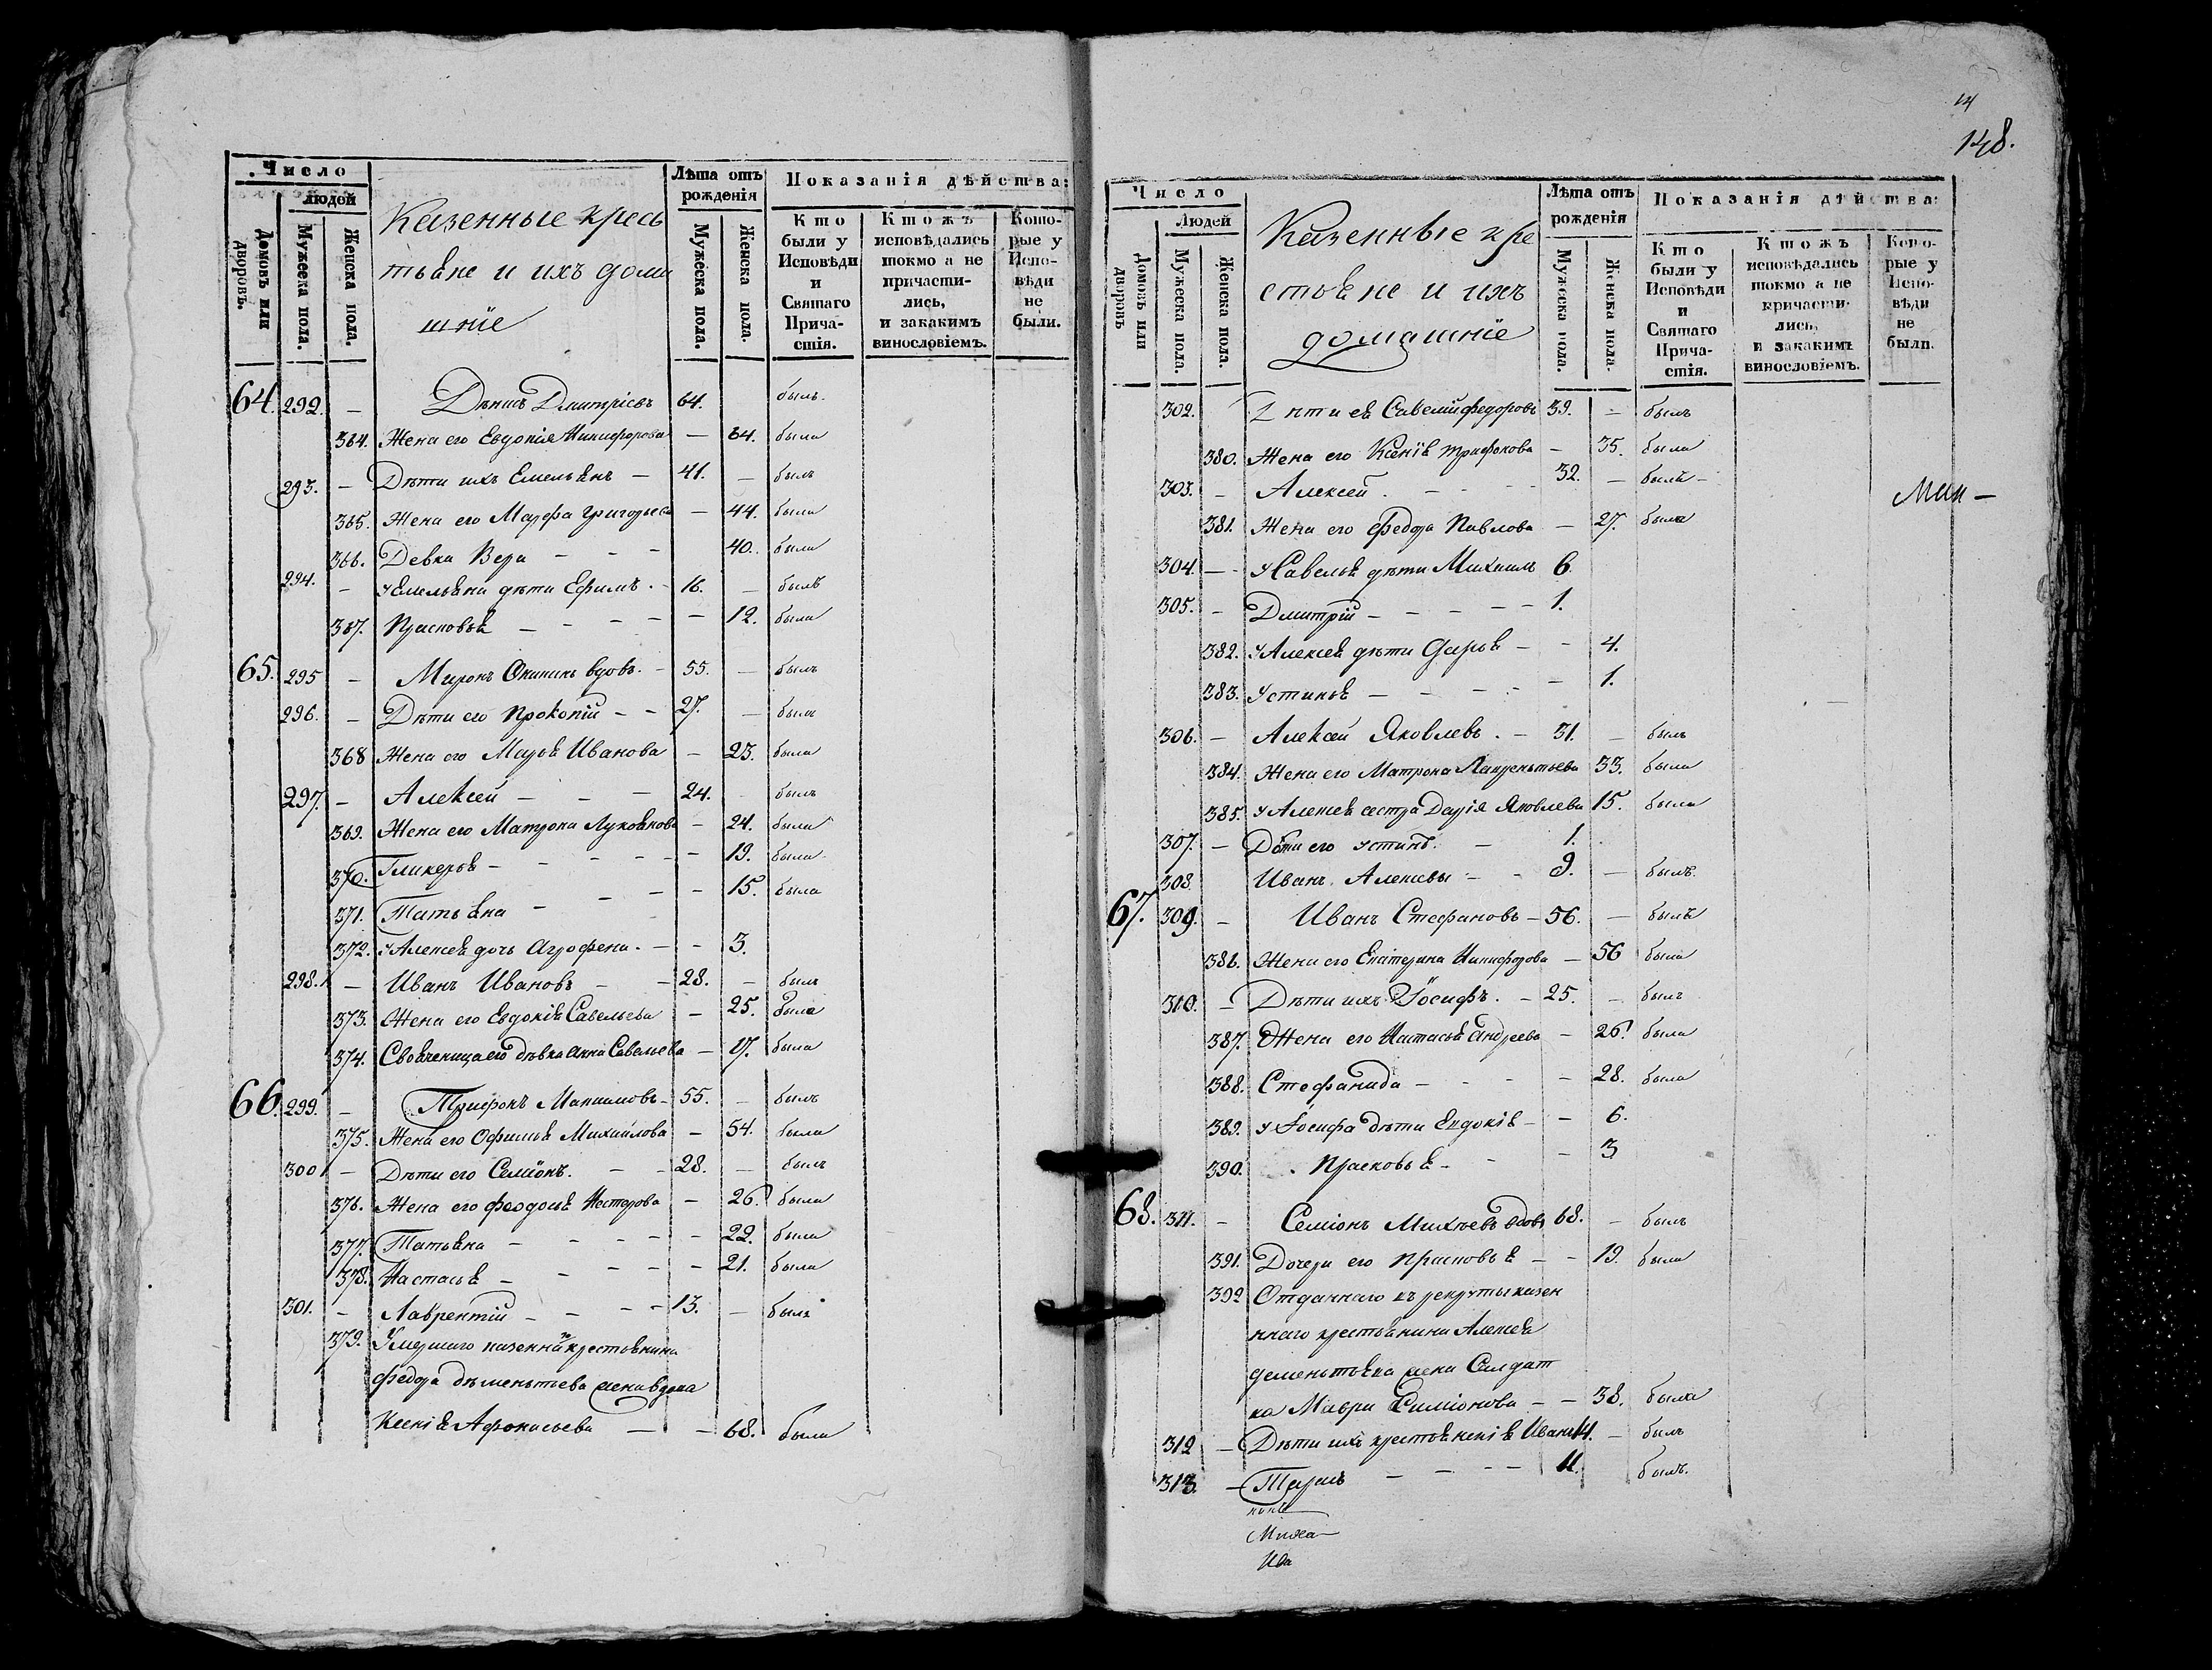 Число
людей
Домовъ или дворовъ.
Мужеска пола.
Женска пола.
Казенные кресь
тьяне и ихъ дома
шніе
Лѣта отъ рожденія
Мужеска пола.
Женска пола.
Показанія дѣйства:
Кто были у Исповѣди и Святаго Причастія.
Ктожъ исповѣдались токмо а не причастились, и закакимъ винословіемъ.
Которые у Исповѣди не были.
64. 292. — Дѣнисъ Дмитріевъ 64. былъ.
364. Жена его Евдокія Никифорова — 64. была
293. — Дѣти ихъ Емельянъ — 41. — былъ
365. Жена его Марфа Григорьева — 44. была
366. Девка Вера — — — 40. была
294. — У Емельяна дѣти Ефимъ. — 16. — былъ
367. Прасковья — — — — 12. была
65. 295 — Миронъ вдовъ. — 55. — былъ
296. — Дѣти его Прокопій — — 27. — былъ
368 Жена его Марья Иванова — 23. была
297. — Алексей — — — 24. — былъ
369. Жена его Матрона Лукоянова — 24. была
370. Гликерья — — — — — 19. была
371. Татьяна — — — — 15. была
372. У Алексея дочь Агрофена. — — 3.
298. — Иванъ Ивановъ — — 28. — былъ
373. Жена его Евдокія Савельева — 25. была
374. Своячница его дѣвка Анна Савельева — 17. была
66. 299. — Трифонъ Максимовъ — 55. — былъ
375. Жена его Офимья Михайлова — 54. была
300 — Дѣти его Семіонъ. — — 28. — былъ
376. Жена его Феодосья Нестерова — 26. была
377. Татьяна — — — — — 22. была
378. Настасья — — — — — 21. была
301. — Лаврентій — — — — 13. — былъ
379. Умершаго казеннаго крестьянина
Федора Дѣментьева жена вдова
Ксенія Афонасьева — — 68. была
14
148.
Число
Людей
Домовъ или дворовъ
Мужеска пола.
Женска пола.
Казенные кре
стьяне и ихъ
домашніе
Лѣта отъ рожденія
Мужеска пола.
Женска пола.
Показанія дѣйства:
Кто были у Исповѣди и Святаго Причастія.
Ктожъ исповѣдались токмо а не причастились, и закакимъ винословіемъ.
Которые у Исповѣди не были.
302. Дѣти ея Савелій Федоровъ 39. — былъ
380. Жена его Ксенія Трифонова — 35. была
303. — Алексей. — — — 32. — былъ —
381. Жена его Федора Павлова — 27. была
304. — У Савелья дѣти Михаилъ 6
305. — Дмитрій — — — — — 1.
382. У Алексея дѣти Дарья — — 4.
383. Устинья — — — — — 1.
306. — Алексей Яковлевъ. — 31. — былъ
384. Жена его Матрона Лаврентьева 33. была
385. У Алексея сестра Дарія Яковлева 15. была
307. — Дѣти его Устинъ. — 1.
308 Иванъ Алексевы — — 9. — былъ.
67. 309. — Иванъ Стефановъ — 56. — былъ
386. Жена его Екатерина Никифорова — 56 была
310. — Дѣти ихъ Іосифъ. — 25. — былъ
387. Жена его Настасья Андреева — 26. была
388. Стефанида — — — — 28. была
389. У Іосифа дѣти Евдокія — — 6.
390. Прасковья — — — 3
68. 311. — Семіонъ вдовъ 68. — былъ
391. Дочери его Прасковья — — 19. была
392 Отданнаго въ рекруты казен
ннаго крестьянина Алексея
Дементьева жена Салдат
ка Мавра Симіонова — — 38. была
312 — Дѣти ихъ Иванъ 14. — былъ
313. — — — — — 11. былъ.
Миха—
Ива